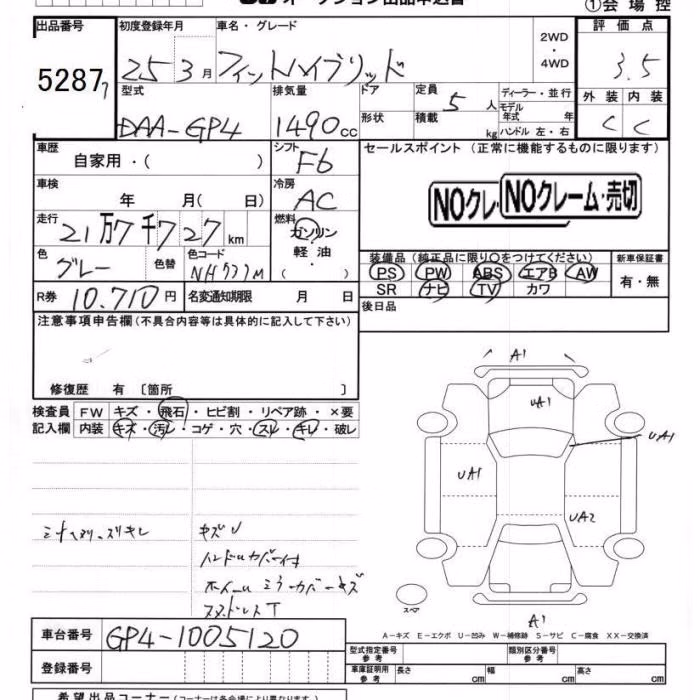 オークション出品申込書
①会場控
出品番号 初度登録年月 車名・グレード 2WD ・ 4WD 評価点
5287 25 3月 フィットハイブリッド 3.5
型式 排気量 ドア 定員 5人 ディーラー・並行 外装 内装
DAA-GP4 1490cc 形状 積載 kg モデル年式 年 C C
ハンドル 左・右
車歴 自家用・( ) シフト F6 セールスポイント (正常に機能するものに限ります)
車検 年 月( 日) 冷房 AC NOクレ NOクレーム・売切
走行 21万7千727km 燃料 ガソリン 軽油 ・( )
色 グレー 色替 色コード NH737M
装備品 (純正品に限り○をつけてください) 新車保証書
PS PW ABS エアB AW 有・無
SR ナビ TV カワ
R券 10.710円 名変通知期限 月 日 後日品
注意事項申告欄(不具合内容等は具体的に記入して下さい)
修復歴 有 〔箇所 〕
検査員 FW キズ・飛石・ヒビ割・リペア跡・×要
記入欄 内装 キズ・汚レ・コゲ・穴・スレ・キレ・破レ
A1
UA1
UA1
UA1
UA2
キズU
ハンドルカバー付
ホイール ミラーカバーキズ
スタッドレスT
スペア
A1
A-キズ E-エクボ U-凹み W-補修跡 S-サビ C-腐食 XX-交換済
車台番号 GP4-1005120
型式指定番号 参考 類別区分番号 参考
登録番号 車庫証明用 参考 長さ cm 幅 cm 高さ cm
希望出品コーナー(コーナーは各会場により異なります)